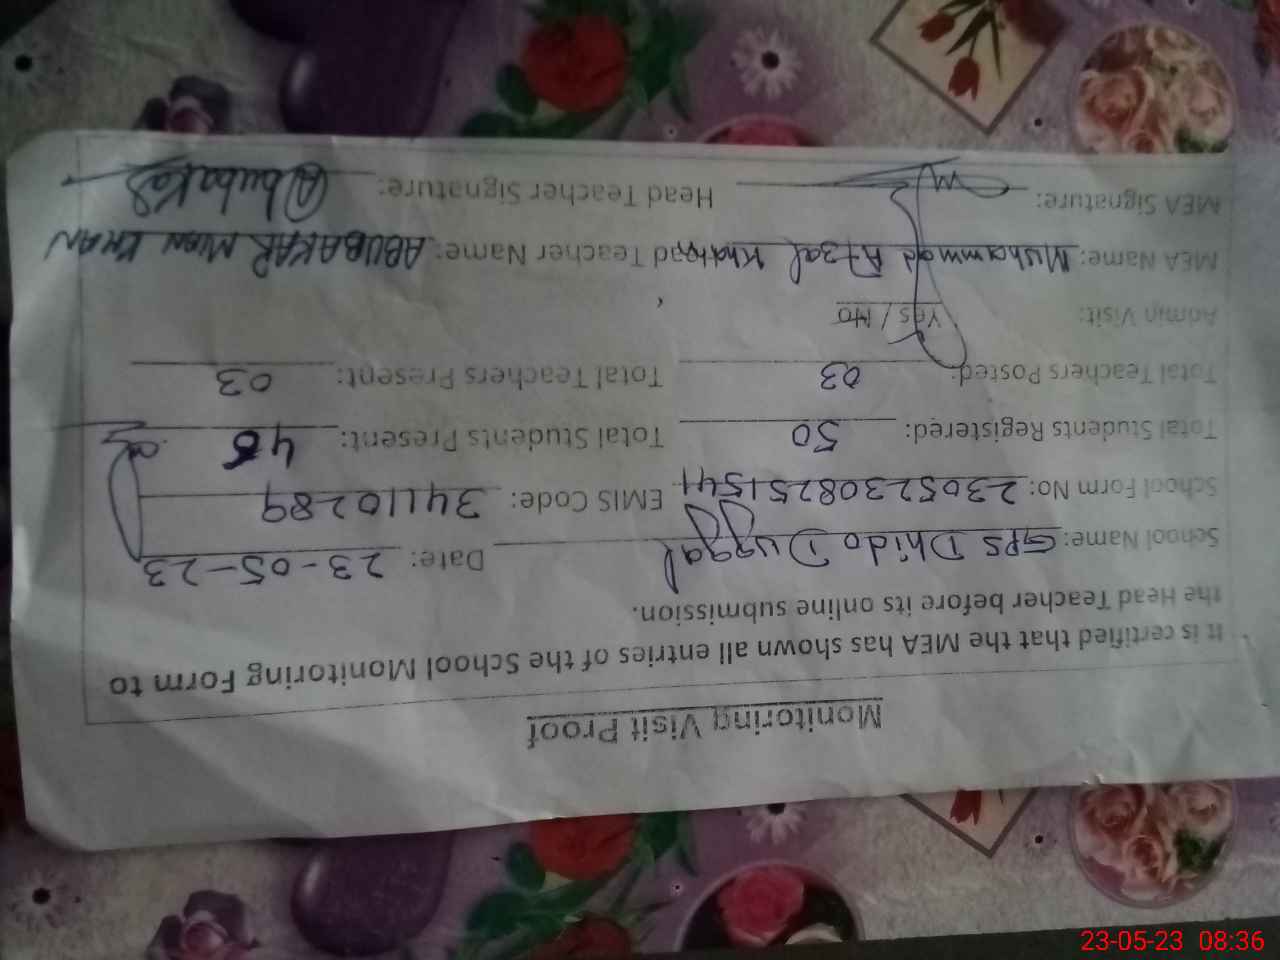 Monitoring Visit Proof
It is certified that the MEA has shown all entries of the School Monitoring Form to
the Head Teacher before its online submission.
School Name: GPS Dhido Duggal Date: 23-05-23
School Form No: 2305230825 1541 EMIS Code: 34110289
Total Students Registered: 50 Total Students Present: 45
Total Teachers Posted: 03 Total Teachers Present: 03
Admin Visit: Yes / No
MEA Name: Muhammad Afzal Head Teacher Name: ABUBAKAR MIAN KHAN
MEA Signature: Head Teacher Signature: Abubakar
23-05-23 08:36